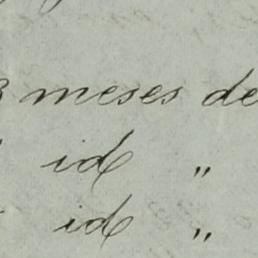 3 meses de
id "
id "